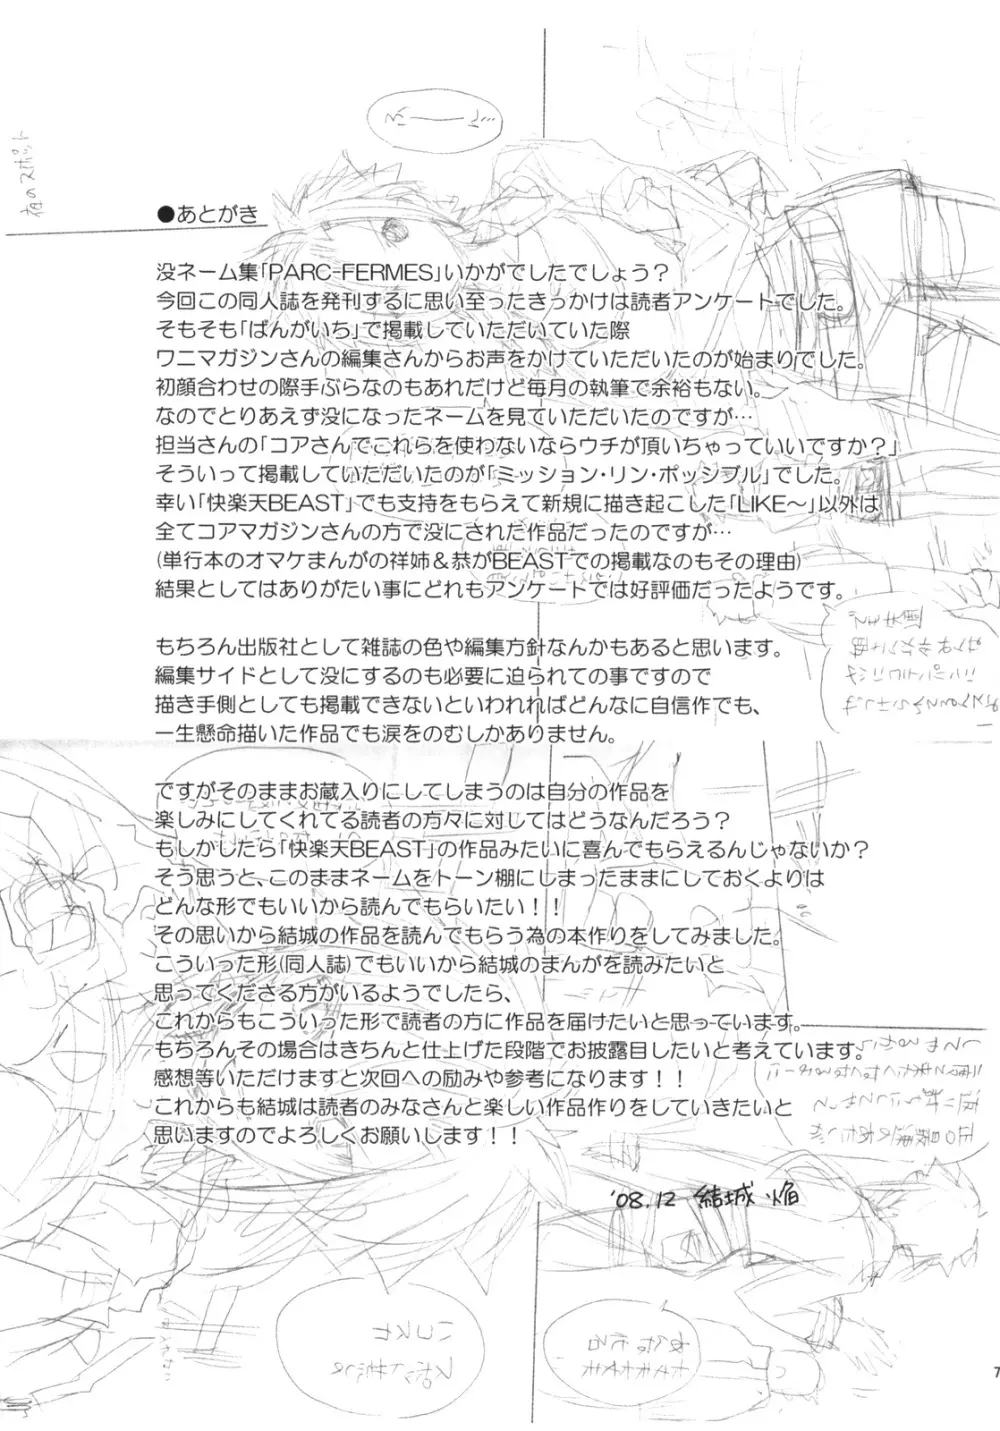 ●あとがき
没ネーム集「PARC-FERMES」いかがでしたでしょう？
今回この同人誌を発刊するに思い至ったきっかけは読者アンケートでした。
そもそも「ばんがいち」で掲載していただいていた際
ワニマガジンさんの編集さんからお声をかけていただいたのが始まりでした。
初顔合わせの際手ぶらなのもあれだけど毎月の執筆で余裕もない。
なのでとりあえず没になったネームを見ていただいたのですが…
担当さんの「コアさんでこれらを使わないならウチが頂いちゃっていいですか？」
そういって掲載していただいたのが「ミッション・リン・ポッシブル」でした。
幸い「快楽天BEAST」でも支持をもらえて新規に描き起こした「LIKE～」以外は
全てコアマガジンさんの方で没にされた作品だったのですが…
(単行本のオマケまんがの祥姉＆恭がBEASTでの掲載なのもその理由)
結果としてはありがたい事にどれもアンケートでは好評価だったようです。
もちろん出版社として雑誌の色や編集方針なんかもあると思います。
編集サイドとして没にするのも必要に迫られての事ですので
描き手側としても掲載できないといわれればどんなに自信作でも、
一生懸命描いた作品でも涙をのむしかありません。
ですがそのままお蔵入りにしてしまうのは自分の作品を
楽しみにしてくれてる読者の方々に対じてはどうなんだろう？
もしかしたら「快楽天BEAST」の作品みたいに喜んでもらえるんじゃないか？
そう思うと、このままネームをトーン棚にしまったままにしておくよりは
どんな形でもいいから読んでもらいたい！！
その思いから結城の作品を読んでもらう為の本作りをしてみました。
こういった形(同人誌)でもいいから結城のまんがを読みたいと
思ってくださる方がいるようでしたら、
これからもこういった形で読者の方に作品を届けたいと思っています。
もちろんその場合はきちんと仕上げた段階でお披露目したいと考えています。
感想等いただけますと次回への励みや参考になります！！
これからも結城は読者のみなさんと楽しい作品作りをしていきたいと
思いますのでよろしくお願いします！！
'08.12 結城 焔
7